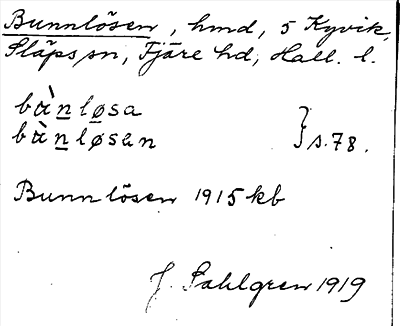 Bunnlösen, hmd, 5 Kyvik,
Släps sn, Fjäre hd, Hall. l.
bànløsa
bànløsan } s. 78.
Bunnlösen 1915 kb
J. Sahlgren 1919